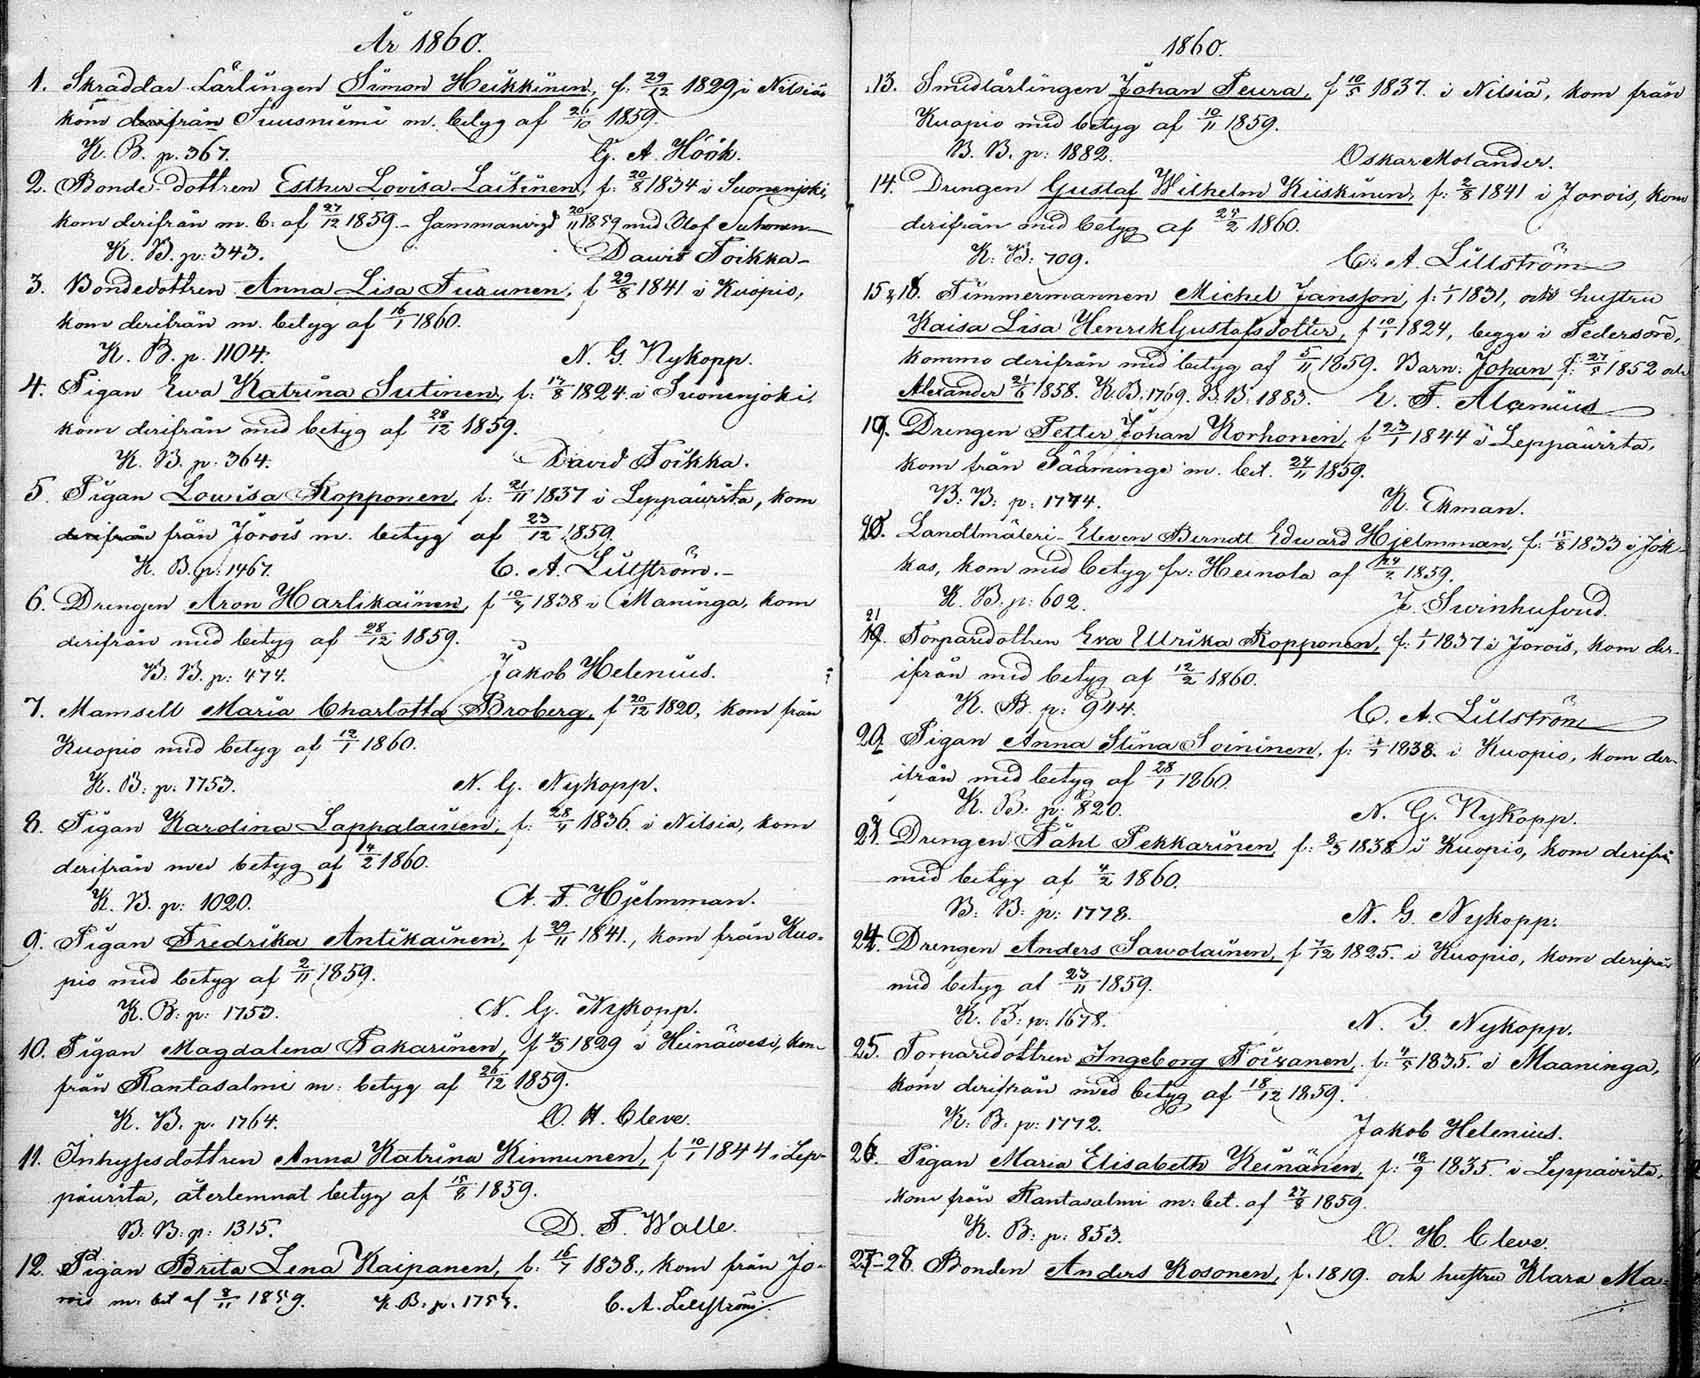 År 1860.
1. Skräddar-Lärlingen Simon Heikkinen, f: 29/12 1829 i Nilsiä
kom derifrån Tuusniemi m. betyg af 26/10 1859.
K. B. p. 367. G. A. Höök.
2. Bonde-dottren Esther Lovisa Laitinen, f: 20/8 1834 i Suonenjoki,
kom derifrån m. b: af 27/12 1859. - Sammanvigd 20/11 1859 med Olof Suhonen
K. B. p: 343. Dawit Toikka
3. Bondedottren Anna Lisa Turunen, f 29/8 1841 i Kuopio,
kom derifrån m. betyg af 16/1 1860.
K. B. p. 1104. N. G. Nykopp.
4. Pigan Ewa Katrina Sutinen, f: 17/8 1824 i Suonenjoki,
kom derifrån med betyg af 28/12 1859.
K. B. p. 364. David Toikka.
5. Pigan Lowisa Kopponen, f: 21/11 1837 i Leppäwirta, kom
derifrån från Jorois m. betyg af 23/12 1859.
K. B. p: 1467. C. A. Lillström.-
6. Drengen Aron Harlikainen, f 10/7 1838 i Maninga, kom
derifrån med betyg af 28/12 1859.
B. B. p: 474. Jakob Helenius.
7. Mamsell Maria Charlotta Broberg, f 20/12 1820, kom från
Kuopio med betyg af 12/1 1860.
K. B: p. 1753. N. G. Nykopp.
8. Pigan Karolina Lappalainen, f: 28/4 1836 i Nilsia, kom
derifrån med betyg af 4/2 1860.
K. B. p: 1020. A. F. Hjelmman.
9. Pigan Fredrika Antikainen, f 29/11 1841., kom från Kuo-
pio med betyg af 2/11 1859.
K. B: p: 1753. N. G. Nykopp.
10. Pigan Magdalena Pakarinen, f 4/3 1829 i Heinäwesi, kom
från Rantasalmi m: betyg af 26/12 1859.
K. B. p. 1764. O. H. Cleve.
11. Inhysesdottren Anna Katrina Kinnunen, f 10/1 1844 i Lep-
päwirta, återlemnat betyg af 15/8 1859.
B. B: p: 1315. D. F. Walle.
12. Pigan Brita Lena Kaipanen, f. 16/7 1838., kom från Jo-
rois m: bet af 8/11 1859. K. B. p. 1753. C. A. Lillström.
1860.
13. Smidlärlingen Johan Peura, f 10/5 1837. i Nilsiä, kom från
Kuopio med betyg af 10/11 1859.
B. B. p: 1882. Oskar Molander.
14. Drengen Gustaf Wilhelm Kiiskinen, f: 2/8 1841 i Jorois, kom
derifrån med betyg af 24/2 1860.
K: B: 709. C. A. Lillström
15 a 18. Timmermannen Michel Jansson, f: 1/1 1831, och hustru
Kaisa Lisa Henrik Gustafsdotter, f 10/1 1824, begge i Pedersöre,
kommo derifrån med betyg af 5/11 1859. Barn: Johan f: 27/5 1852 och
Alexander 21/6 1858. K. B. 1769. B. B: 1883. E. F. Alanius
19. Drengen Petter Johan Korhonen, f 23/1 1844 i Leppäwirta,
kom från Sääminge m. bet. 24/11 1859.
B: B: p: 1774. K. Ekman.
20. Landtmäteri-Eleven Berndt Edward Hjelmman, f: 15/8 1833 i Jok-
kas, kom med betyg fr: Heinola af 1859.
K. B. p: 602. J. Swinhufvud.
21 Torparedottren Eva Ulrika Kopponen, f: 1/1 1837 i Jorois, kom der-
ifrån med betyg af 12/2 1860.
K. B. p: 944. C. A. Lillström
22 Pigan Anna Stina Soininen, f: 1/1 1838. i Kuopio, kom der-
ifrån med betyg af 28/1 1860.
K. B: p: 820. N. G. Nykopp.
23. Drengen Påhl Pekkarinen, f: 8/3 1838 i Kuopio, kom derifrån
med betyg af 4/2 1860.
B: B: p: 1778. N. G. Nykopp.
24. Drengen Anders Sawolainen, f 7/12 1825. i Kuopio, kom derifrån
med betyg af 23/11 1859.
K. B: p: 1678. N. G. Nykopp.
25. Torparedottren Ingeborg Toivanen, f: 4/5 1835. i Maaninga,
kom derifrån med betyg af 18/12 1859.
K. B. p: 1772. Jakob Helenius.
26. Pigan Maria Elisabeth Keinänen, f: 19/9 1835 i Leppäwirta,
kom från Rantasalmi m: bet. af 27/8 1859.
K. B: p: 853. O. H. Cleve.
27-28. Bonden Anders Kosonen, f. 1819. och hustru Klara Ma-